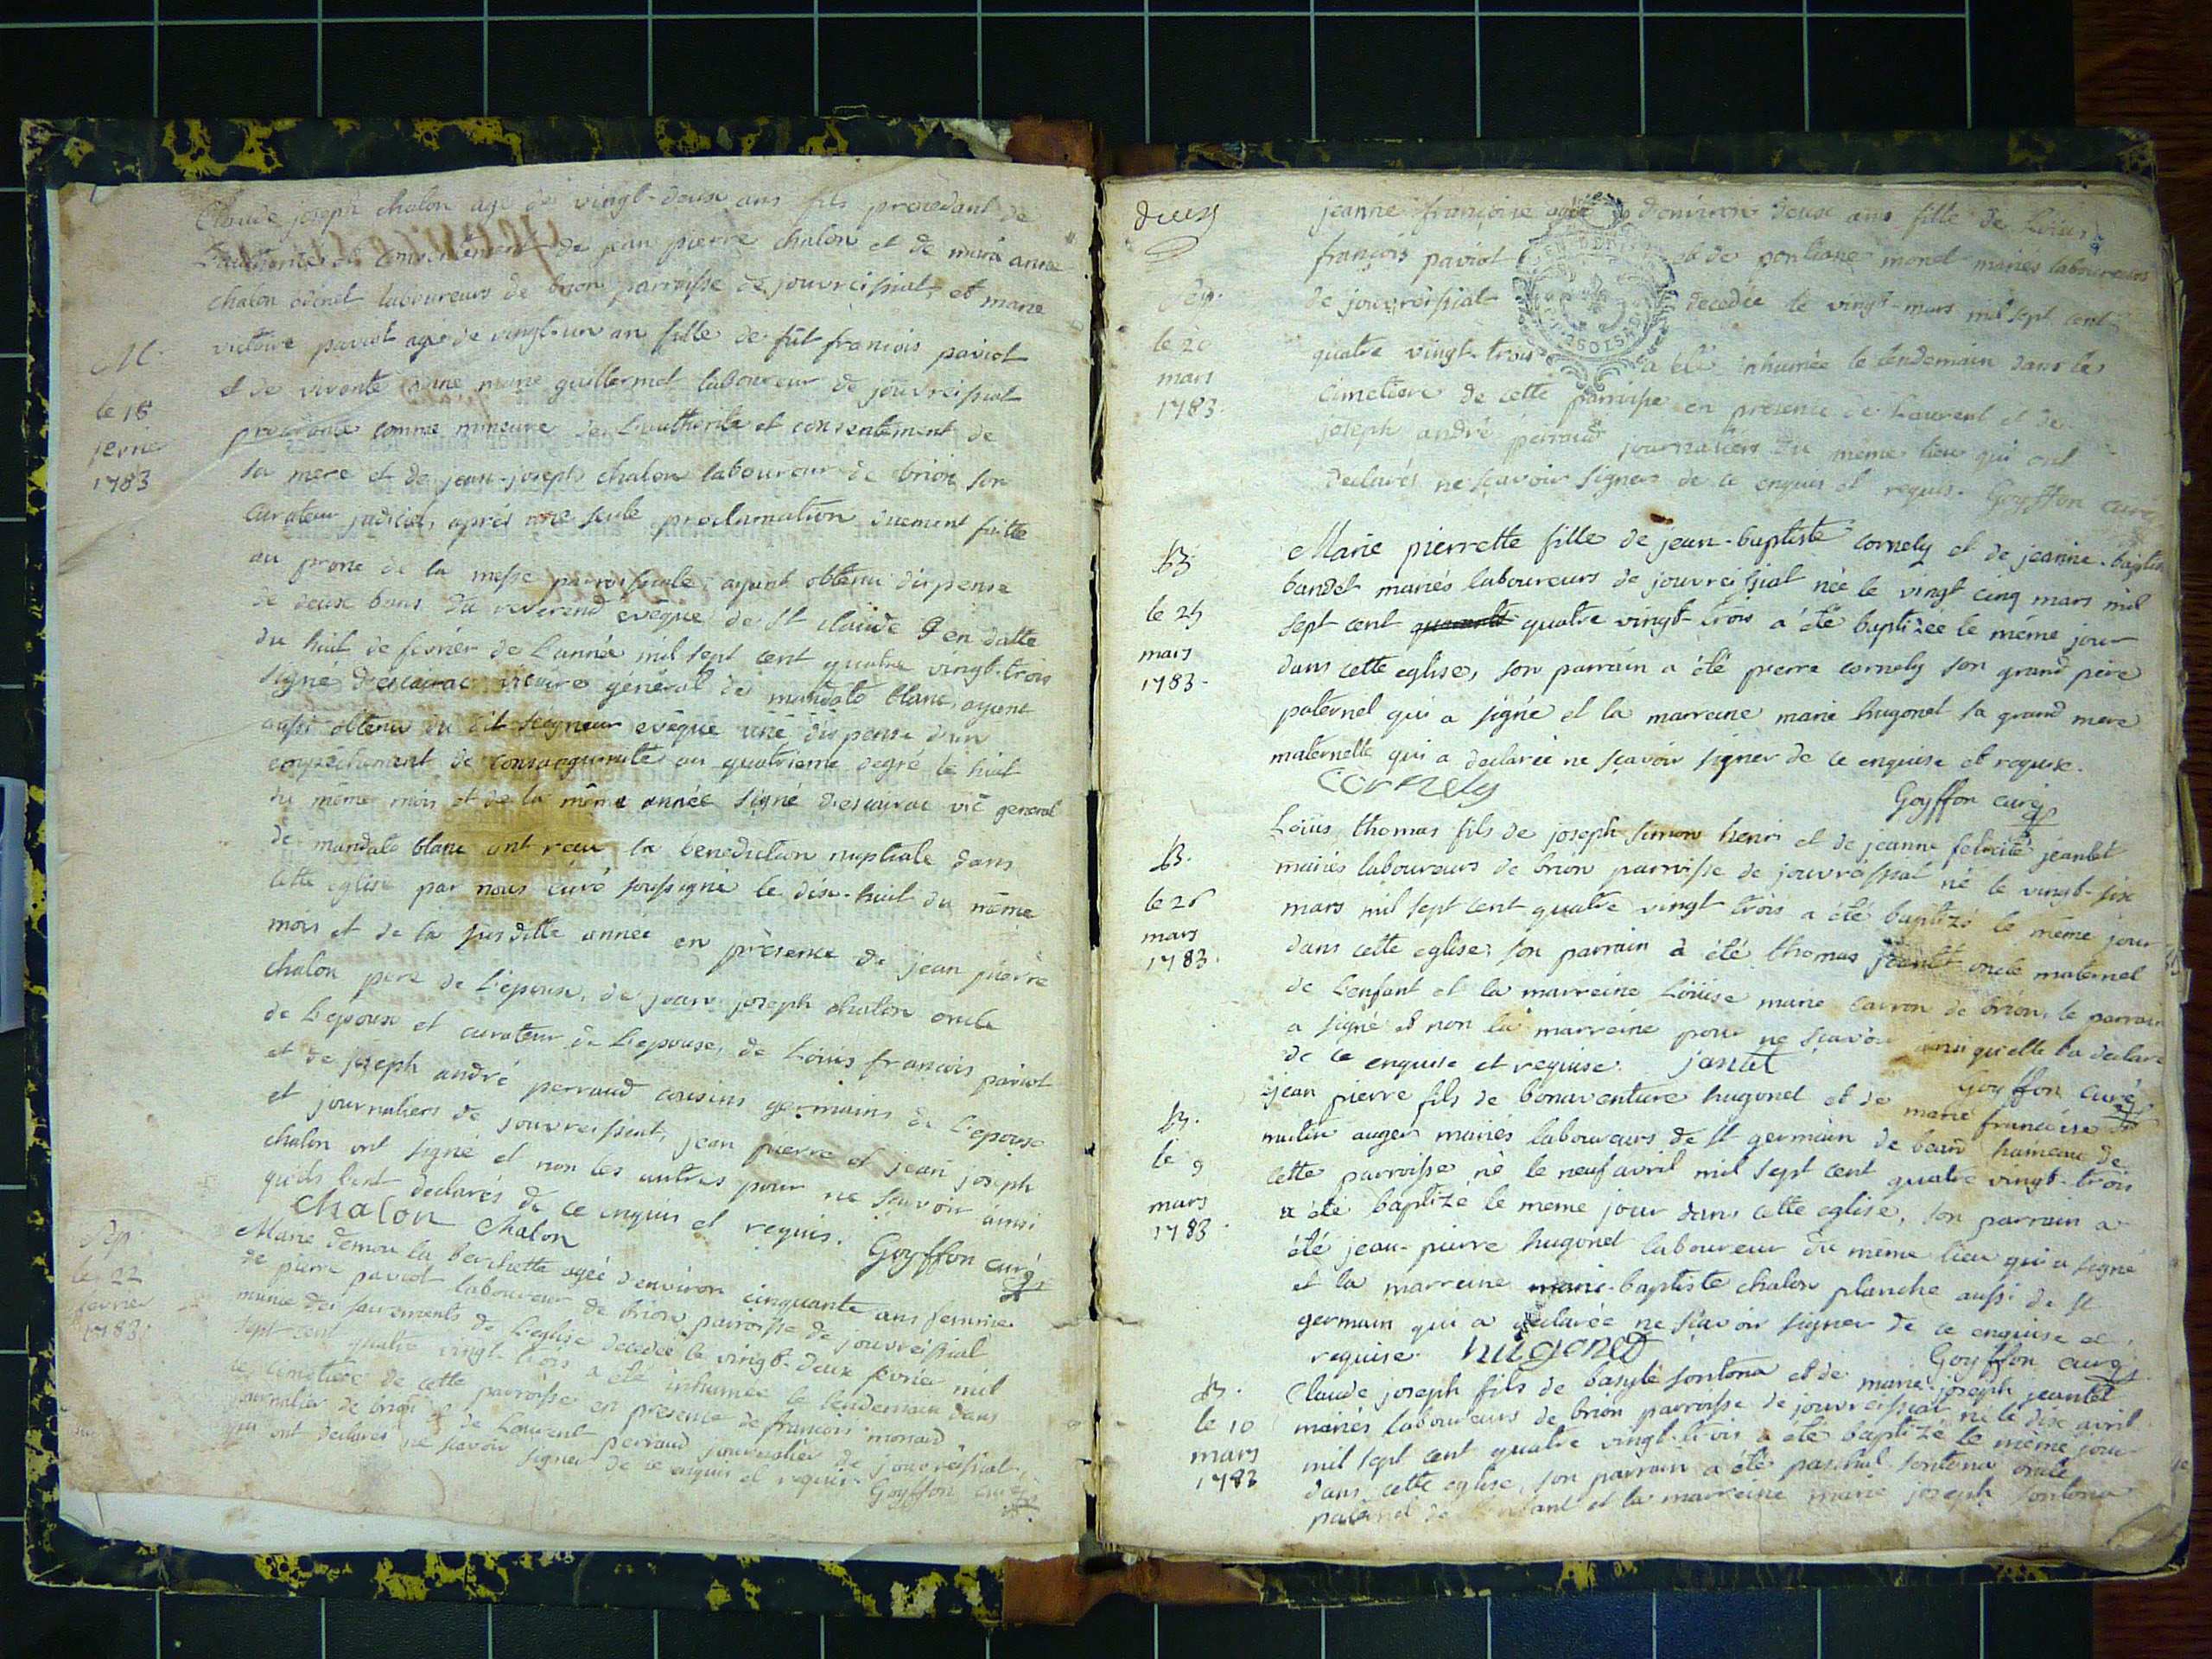 Claude joseph chalon agé de vingt-deux ans fils procedant de
L'authorité et consentement de jean pierre chalon et de marie anne
chalon laboureurs de brion parroisse de jouvreissiat, et marie
M.
victoire paviot agée de vingt-un an fille de fût francois paviot
et de vivante anne marie guillermet laboureur de jouvreissiat
le 18
fevrier
1783
procedante comme mineure de L'authorité et consentement de
sa mere et de jean-joseph chalon laboureur de brion son
curateur judiciel, aprés une seule proclamation duement faitte
au prone de la messe parroissiale ayant obtenu dispense
de deux bans du reverend evêque de St claude en datte
du huit de février de L'année mil sept cent quatre vingt-trois
signé descairac vicaire général de mandato blanc, ayant
aussi obtenu du dit seigneur evêque une dispense d'un
empêchement de consanguinité au quatrieme degré le huit
du même mois et de la même année signé descairac vic general
de mandato blanc ont recu la benediction nuptiale dans
cette eglise par nous curé soussigné le dix-huit du même
mois et de la susditte année en présence de jean pierre
chalon pere de L'epoux, de jean joseph chalon oncle
de L'epoux et curateur de L'epouse, de Loüis francois paviot
et de joseph andré perraud cousins germains de L'epouse
et journaliers de jouvreissiat, jean pierre et jean joseph
chalon ont signé et non les autres pour ne sçavoir ainsi
qu'ils l'ont declarés de ce enquis et requis.
chalon chalon Goyffon curé
Sep.
le 22
février
1783.
Marie demon la berchette agée d'environ cinquante ans femme
de pierre paviot laboureur de brion parroisse de jouvréissiat
munie des sacrements de L'eglise decedée le vingt-deux fevrier mil
sept cent quatre vingt-trois a été inhumée le lendemain dans
le cimetiere de cette parroisse en presence de francois monard
journalier de brion et de Laurent perraud journalier de jouvréissiat
qui ont declarés ne scavoir signer de ce enquis et requis. Goyffon curé
deux
jeanne françoise agée d'environ deux ans fille de Loüis
françois paviot et de pontiane monet mariés laboureurs
Sep.
le 20
mars
1783.
de jouvréissiat decedée le vingt-mars mil sept cent
quatre vingt-trois a été inhumée le lendemain dans le
cimetiere de cette parroisse en presence de Laurent et de
joseph andré perraud journaliers du même lieu qui ont
declarés ne sçavoir signer de ce enquis et requis. Goyffon curé
B.
le 25
mars
1783.
Marie pierrette fille de jean-baptiste cornely et de jeanne-baptiste
bandet mariés laboureurs de jouvreissiat née le vingt cinq mars mil
sept cent quatre vingt-trois a été baptizée le même jour
dans cette eglise, son parrain a été pierre cornely son grand pere
paternel qui a signé et la marreine marie hugonet sa grand mere
maternelle qui a declarée ne sçavoir signer de ce enquise et requise.
cornely
Goyffon curé
B.
le 26
mars
1783.
Loüis thomas fils de joseph simon henri et de jeanne felicité jeantet
mariés laboureurs de brion parroisse de jouvréissiat né le vingt-six
mars mil sept cent quatre vingt trois a été baptizé le même jour
dans cette eglise, son parrain a été thomas jeantet oncle maternel
de L'enfant et la marreine Loüise marie carron de brion, le parrain
a signé et non la marreine pour ne sçavoir ainsi qu'elle l'a declaré
de ce enquise et requise. jantet
Goyffon curé
B.
le 9
mars
1783.
jean pierre fils de bonaventure hugonet et de marie francoise
auger mariés laboureurs de St germain de beard hameau de
cette parroisse né le neuf avril mil sept cent quatre vingt-trois
a été baptizé le meme jour dans cette eglise, son parrain a
été jean-pierre hugonet laboureur du meme lieu qui a signé
et la marreine marie-baptiste chalon planche aussi de St
germain qui a declarée ne sçavoir signer de ce enquise et
requise. hugonet Goyffon curé
B.
le 10
mars
1783
Claude joseph fils de basyle sontona et de marie-joseph jeantet
mariés laboureurs de brion parroisse de jouvreissiat né le dix avril
mil sept cent quatre vingt-trois a été baptizé le même jour
dans cette eglise, son parrain a été paschal sontona oncle
paternel de L'enfant et la marreine marie joseph sontona